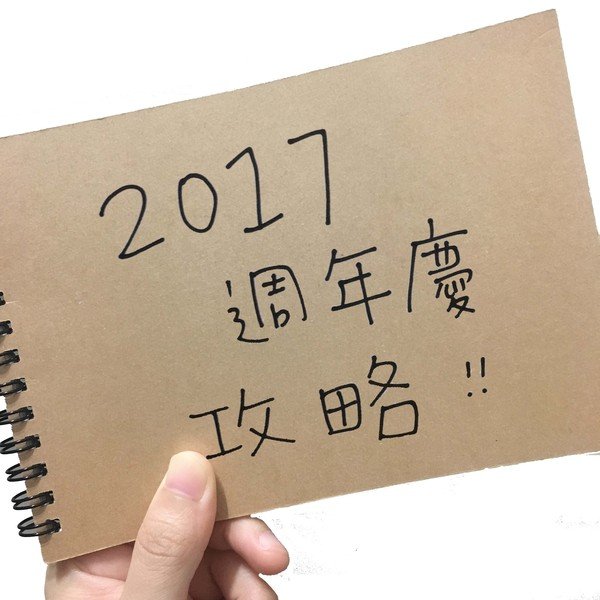 2017
週年慶
攻略!!